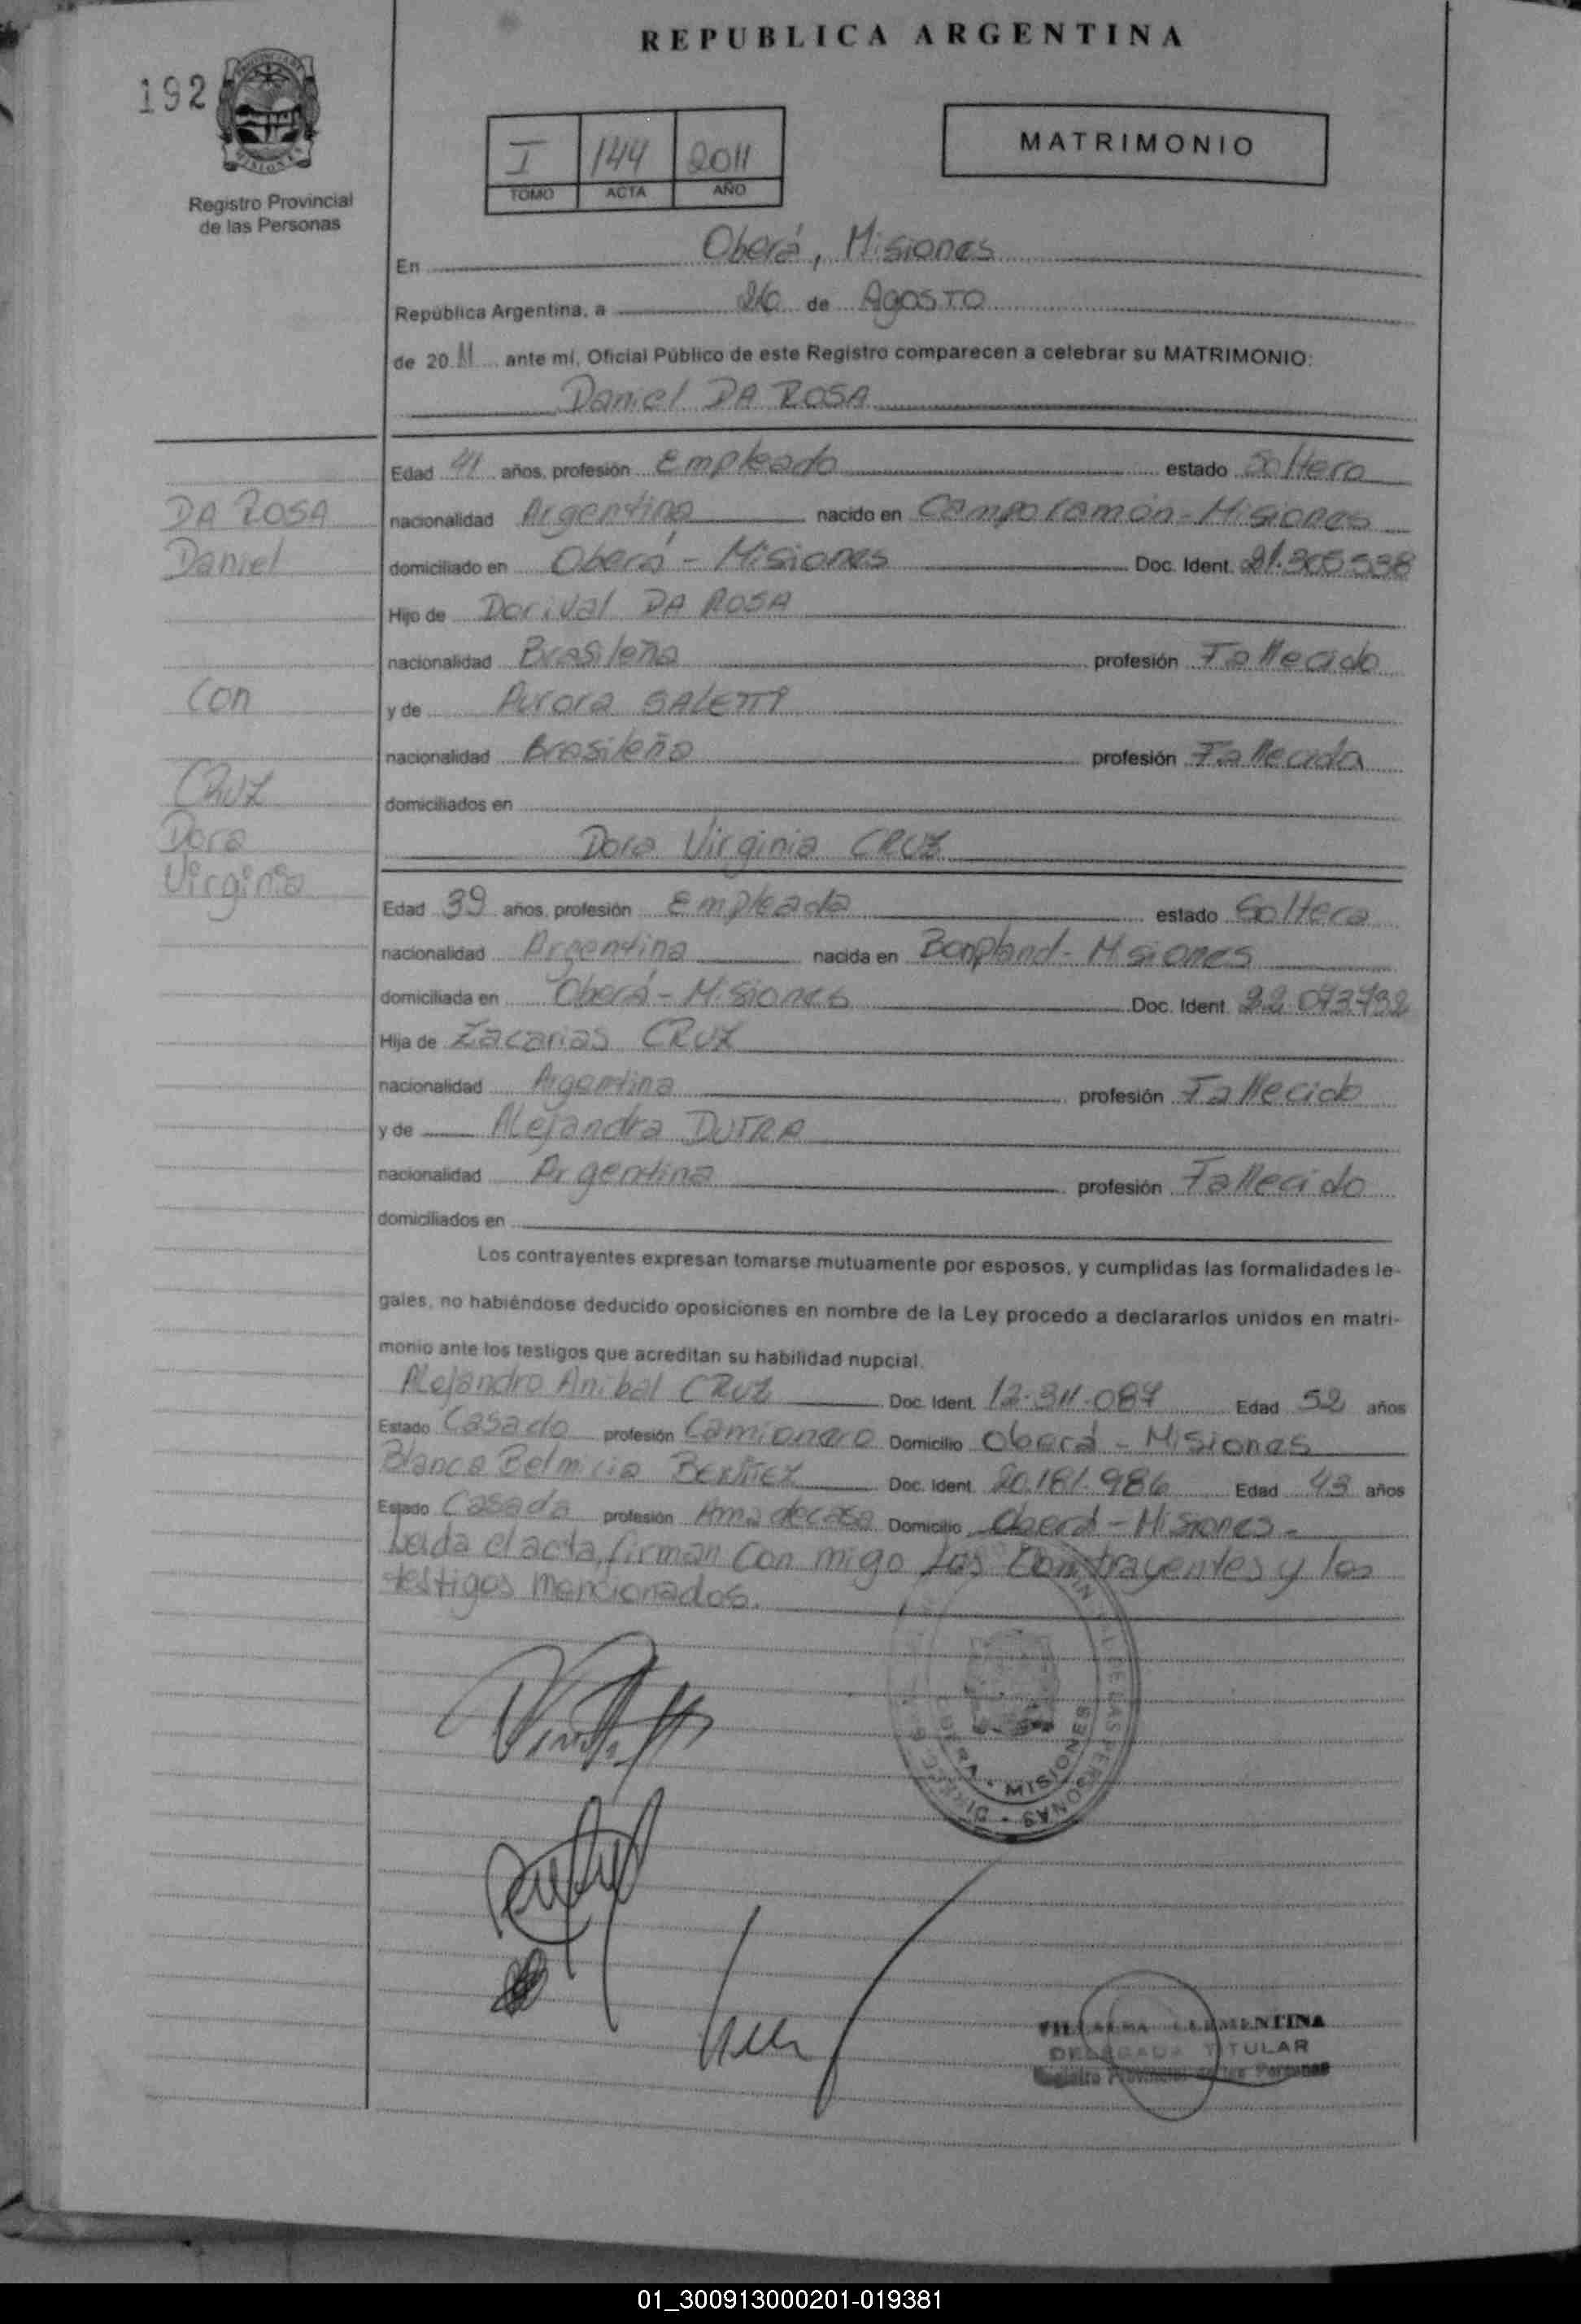 REPUBLICA ARGENTINA
192
MISIONES
Registro Provincial
de las Personas
I 144 2011
TOMO ACTA AÑO
MATRIMONIO
En Oberá, Misiones
República Argentina, a 26 de AgosTO
de 20 11 ante mí, Oficial Público de este Registro comparecen a celebrar su MATRIMONIO:
Daniel DA ROSA
Edad 41 años, profesión Empleado estado Soltero
nacionalidad Argentina nacido en Campo ramón - Misiones
domiciliado en Oberá - Misiones Doc. Ident. 21.305.538
Hijo de Dorival DA ROSA
nacionalidad Brasileña profesión Fallecido
y de Aurora SALETTI
nacionalidad Brasileña profesión Fallecida
domiciliados en
Dora Virginia CRUZ
Edad 39 años, profesión Empleada estado Soltera
nacionalidad Argentina nacida en Bonpland - Misiones
domiciliada en Oberá - Misiones Doc. Ident. 22.073.732
Hija de Zacarias CRUZ
nacionalidad Argentina profesión Fallecido
y de Alejandra DUTRA
nacionalidad Argentina profesión Fallecido
domiciliados en
DA ROSA
Daniel
Con
CRUZ
Dora
Virginia
Los contrayentes expresan tomarse mutuamente por esposos, y cumplidas las formalidades le-
gales, no habiéndose deducido oposiciones en nombre de la Ley procedo a declararlos unidos en matri-
monio ante los testigos que acreditan su habilidad nupcial.
Alejandro Anibal CRUZ Doc. Ident. 12.311.087 Edad 52 años
Estado Casado profesión Camionero Domicilio Oberá - Misiones
Blanca Belmicia BENITEZ Doc. Ident. 20.181.986 Edad 43 años
Estado Casada profesión Ama de casa Domicilio Oberá - Misiones -
Leida el acta, firman Con migo Los Contrayentes y los
testigos mencionados.
OBERA - MISIONES
DE LAS PERSONAS
VILLALBA CLEMENTINA
DELEGADA TITULAR
Registro Provincial de las Personas
01_300913000201-019381